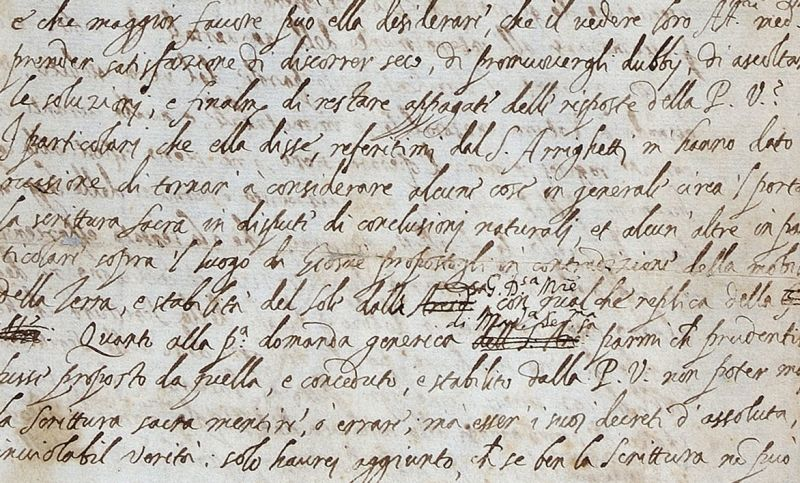 e che maggior favore può ella desiderare, che il vedere loro Alt.
prender satisfazione di discorrer seco, di promuovergli dubbij, di ascoltar
le soluzioni, e finalm. di restare appagati delle risposte della P. V.?
I particolari che ella disse, referitimi dal S. Arrighetti m hanno dato
occasione di tornar à considerare alcune cose in generale circa 'l porta
la scrittura sacra in dispute di conclusioni naturali, et alcun' altre in pa
ticolare sopra 'l luogo di Giosuè propostogli in contradizione della mobi
della Terra, e stabilità del Sole dalla con qualche replica della
di Mad. Ser.ma
Quanto alla p.a domanda generica parmi ch prudenti
fusse proposto da quella, e conceduto, e stabilito dalla P. V. non poter ma
la Scrittura sacra mentire, ò errare, mà esser i suoi decreti d' assoluta,
inviolabil verità: solo haurei aggiunto, ch se ben la Scrittura nō può